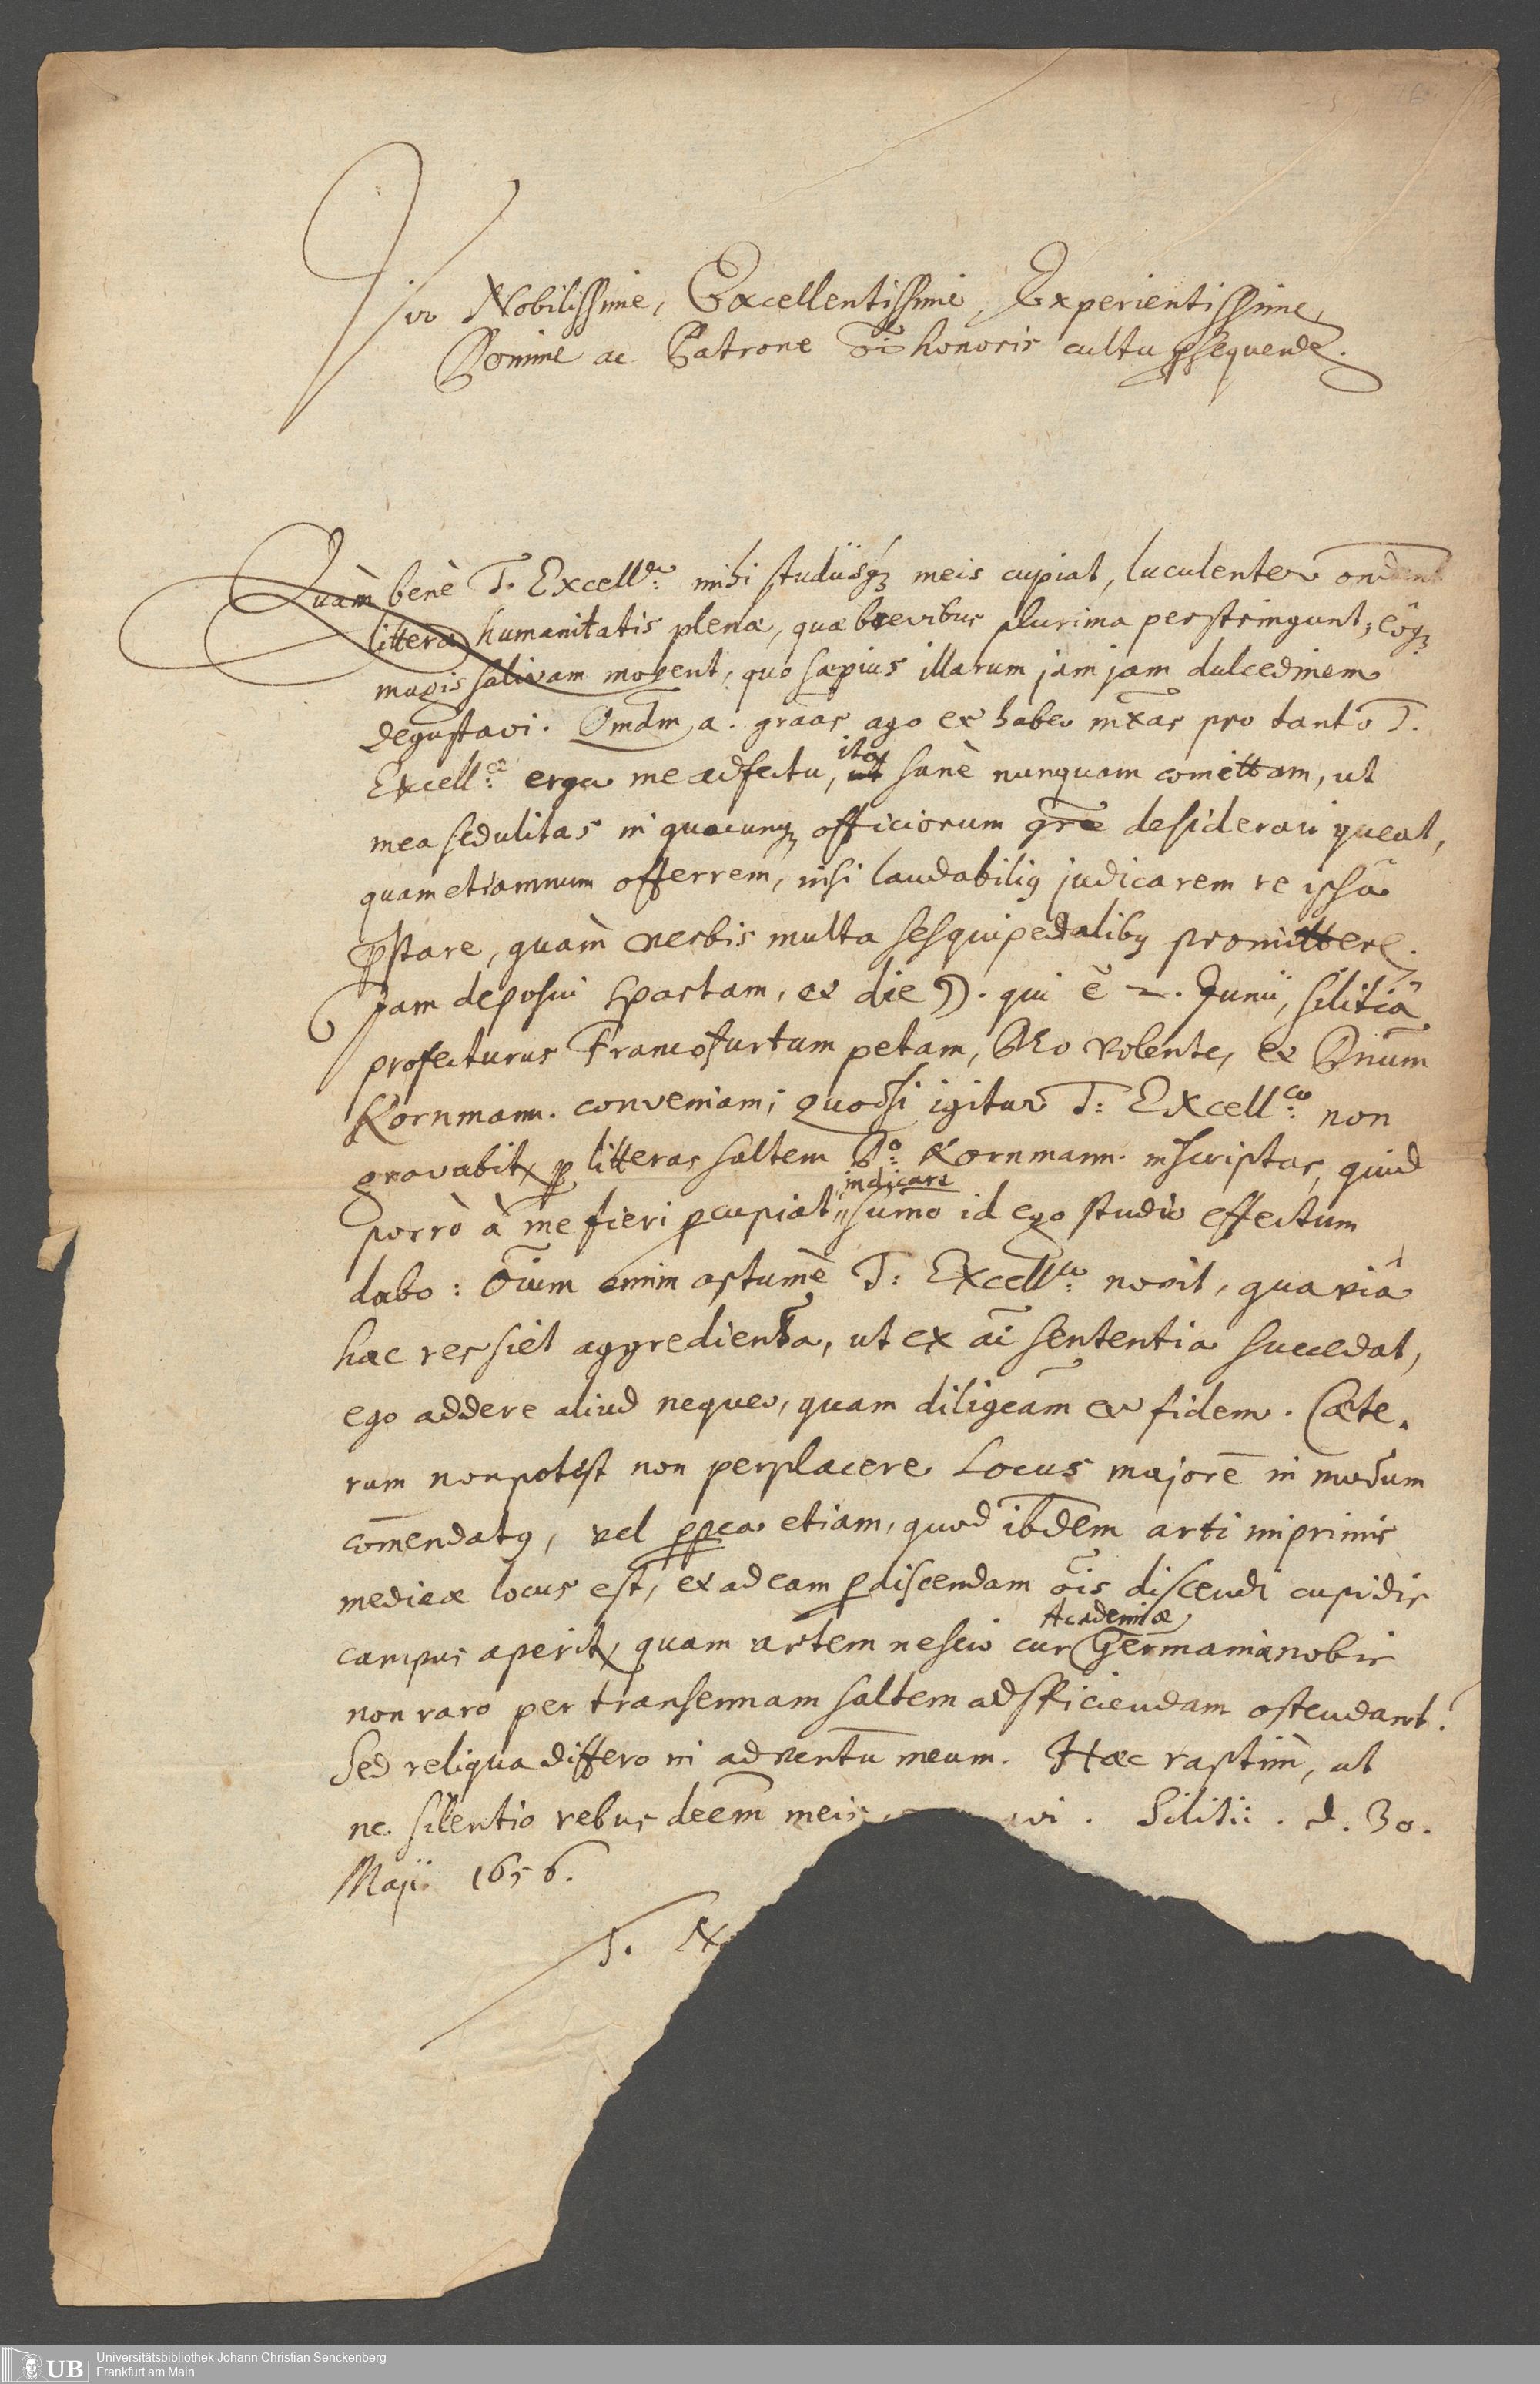 Vir Nobilissime, Excellentissime, Experientissime,
Domine ac Patrone oĩ honoris cultu ꝓsequende.
Quàm benè T. Excell.ª mihi studiisqꝫ meis cupiat, luculenter ondunt
litteræ humanitatis plenæ, quæ brevibus plurima perstringunt, eoqꝫ
magis salivam movent, quo sæpius illarum jam jam dulcedinem
degustavi. Omdm, a. graãs ago et habeo mxãs pro tanto T.
Excell.ª erga me adfectu, ita sanè nunquam comittam, ut
mea sedulitas in quacunqꝫ officiorum gr̃e desiderari queat,
quam etiamnum offerrem, nisi laudabiliꝰ judicarem re ipsâ
p̃stare, quàm verbis multa sesquipedalibꝰ promittere.
Jam deposui spartam, et die ☽. qui ẽ 2. Junii, Silitiâ
profecturus Francofurtum petam, Deo volente, et Dnũm
Kornmann. conveniam; quodsi igitur T: Excell.ª non
gravabitur ꝑ litteras saltem Dº: Kornmann. inscriptas, quid
porrò à me fieri ꝑcupiat indicare sum̃o id ego studio effectum
dabo: Oĩum enim optumè T: Excell.ª novit, qua viâ
hæc res siet aggredienda, ut ex aĩ sententia succedat,
ego addere aliud nequeo, quam diligeãm et fidem. Cæte-
rum non potest non perplacere Locus majorẽ in modum
com̃endatꝰ, vel ꝓpterea etiam, quod ibdem arti inprimis
medicæ locus est, et ad eam ꝑdiscendam oĩs discendi cupidis
campus aperitur, quam artem nescio cur Academiæ Germaniæ nobis
non raro per transennam saltem adspiciendam ostendant.
Sed reliqua differo in adventũ meum. Hæc raptim, ut
ne silentio rebus deem̃ meis, vi. Silitii. d. 30.
Maji. 1656.
T. Ex
Universitätsbibliothek Johann Christian Senckenberg
Frankfurt am Main
UB